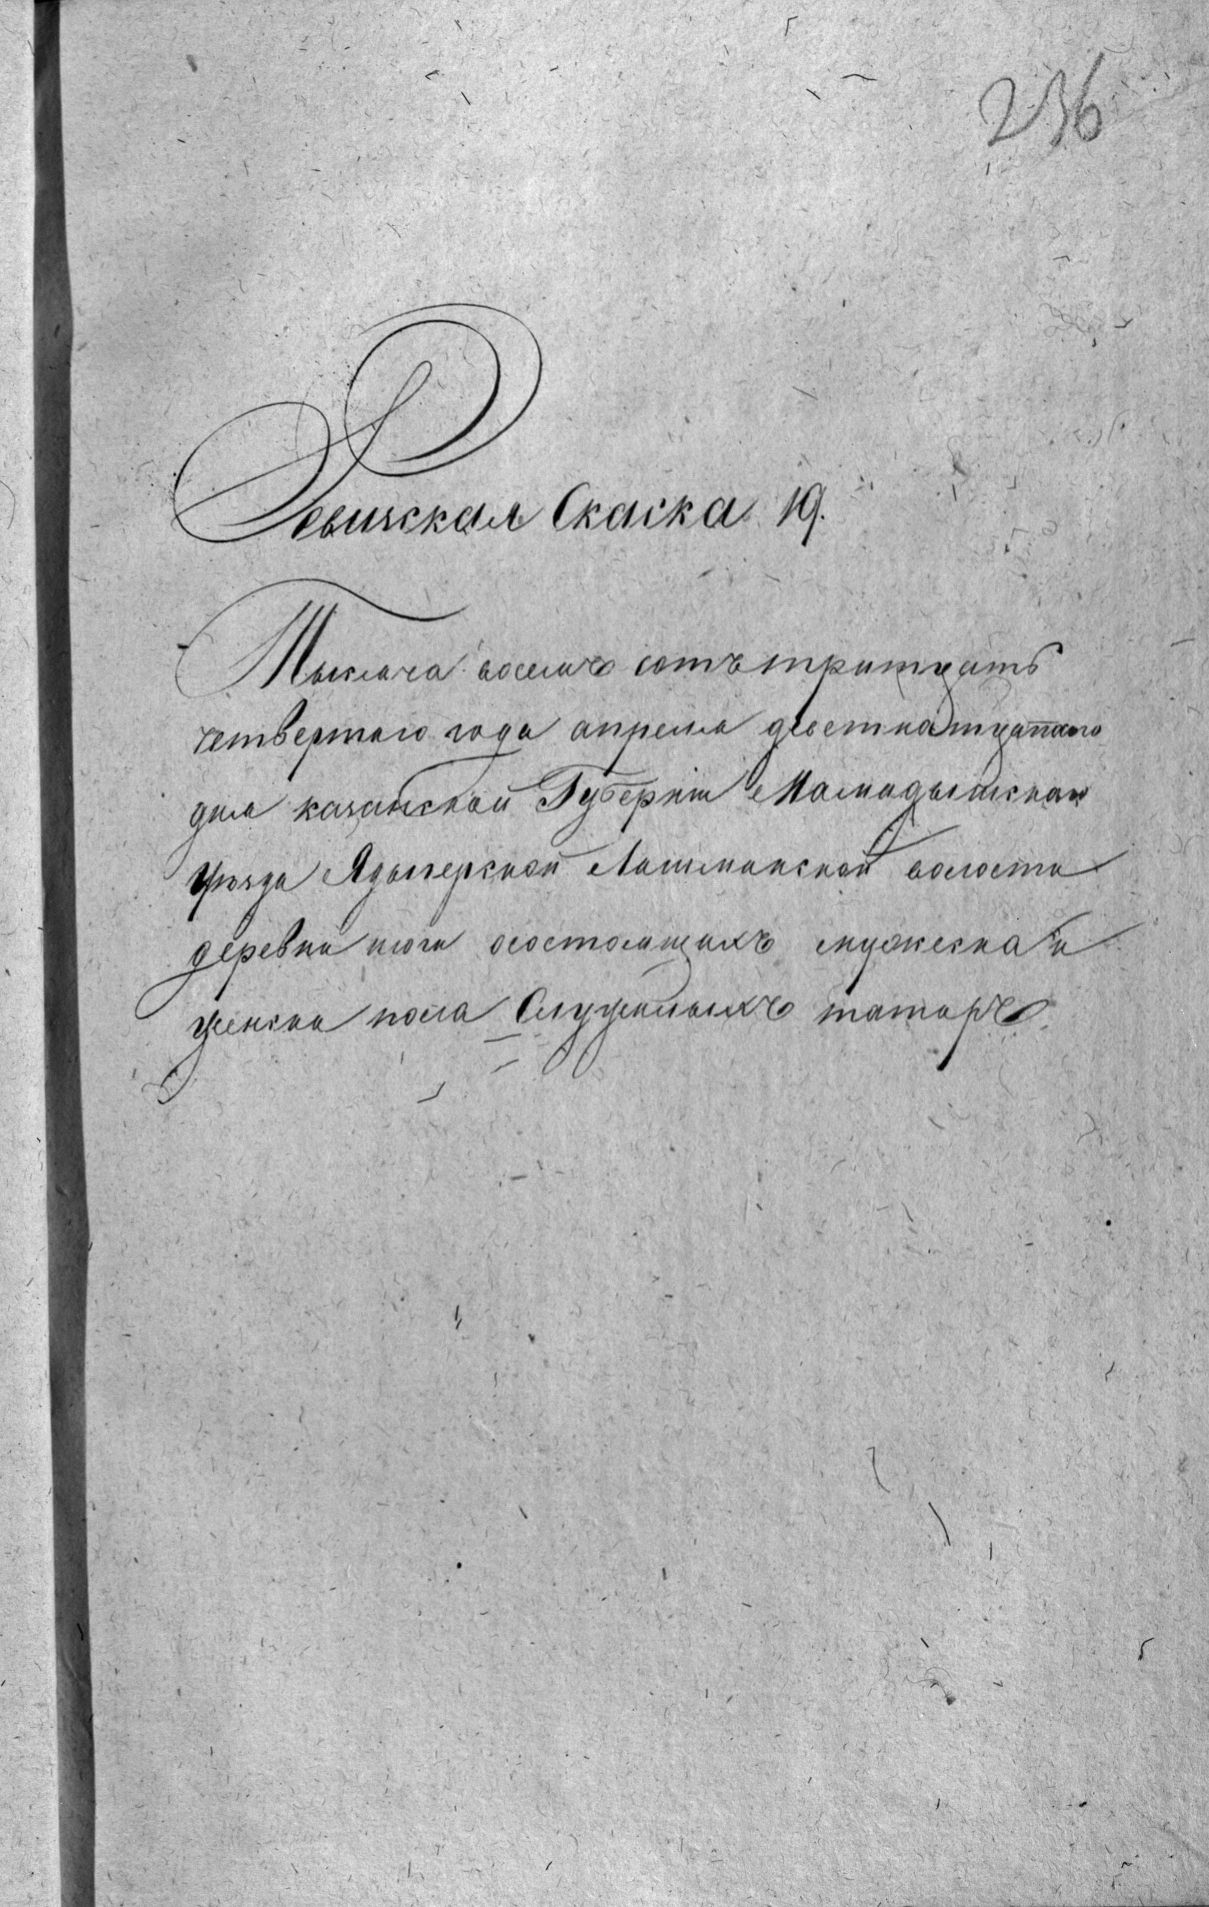 236
Ревизская Скаска 19.
Тысяча восемь сотъ тритцать
четвертаго года апреля деветнатцатаго
дня казанской Губернiи Мамадышскаго
уѣзда Ядыгерской Лашманской волости
деревни о состоящихъ мужеска и
женска пола Служилыхъ татаръ